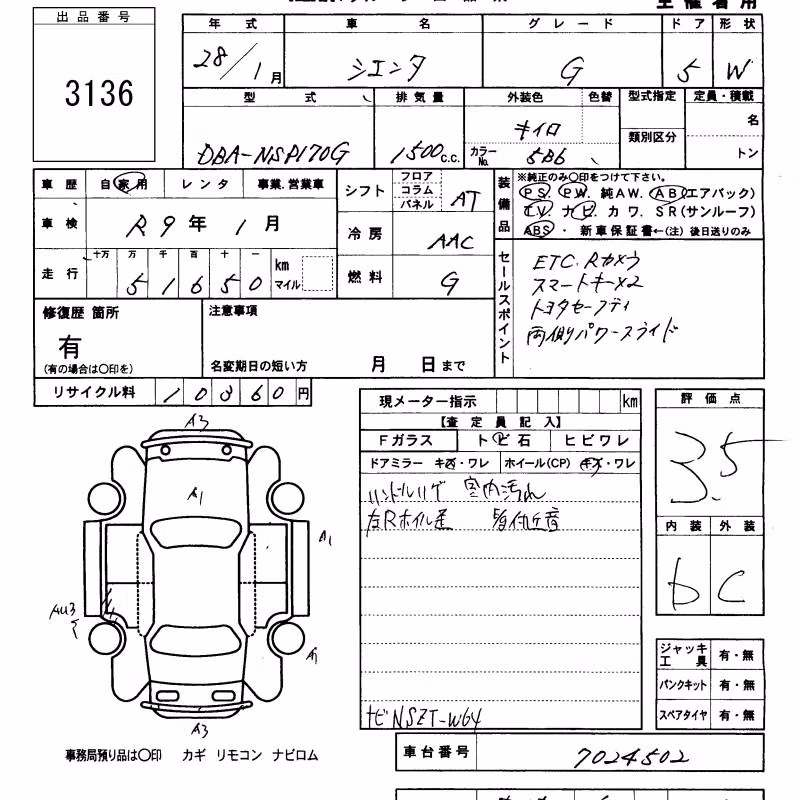 出品番号
3136
主催者用
年式 車名 グレード ドア 形状
28/1月 シエンタ G 5 W
型式 排気量 外装色 色替 型式指定 定員・積載
DBA-NSP170G 1500c.c. キイロ 名
カラーNo. 5B6 類別区分 トン
車歴 自家用 レンタ 事業.営業車
車検 R9年1月
走行 十万 万 千 百 十 一
51650 km マイル
シフト フロア コラム パネル AT
冷房 AAC
燃料 G
装備品 ※純正のみ○印をつけて下さい。
PS. PW. 純AW. AB(エアバック)
TV. ナビ. カワ. SR(サンルーフ)
ABS ・ 新車保証書←(注) 後日送りのみ
セールスポイント
ETC. Rカメラ
スマートキー×2
トヨタセーフティ
両側パワースライド
修復歴 箇所
有
(有の場合は○印を)
注意事項
名変期日の短い方 月 日まで
リサイクル料 10860円
現メーター指示 km
【査定員記入】
Fガラス トビ石 ヒビワレ
ドアミラー キズ・ワレ ホイール(CP) キズ・ワレ
ハンドルハゲ 室内汚れ
左Rホイル歪
ナビNSZT-W64
評価点
3.5
内装 外装
b C
ジャッキ工具 有・無
パンクキット 有・無
スペアタイヤ 有・無
A3
A1
A1
AU3
A1
A3
事務局預り品は○印 カギ リモコン ナビロム
車台番号 7024502